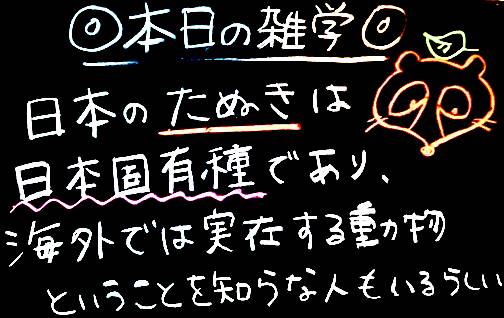 ◎本日の雑学◎
日本のたぬきは
日本固有種であり、
海外では実在する動物
ということを知らな人もいるらしい